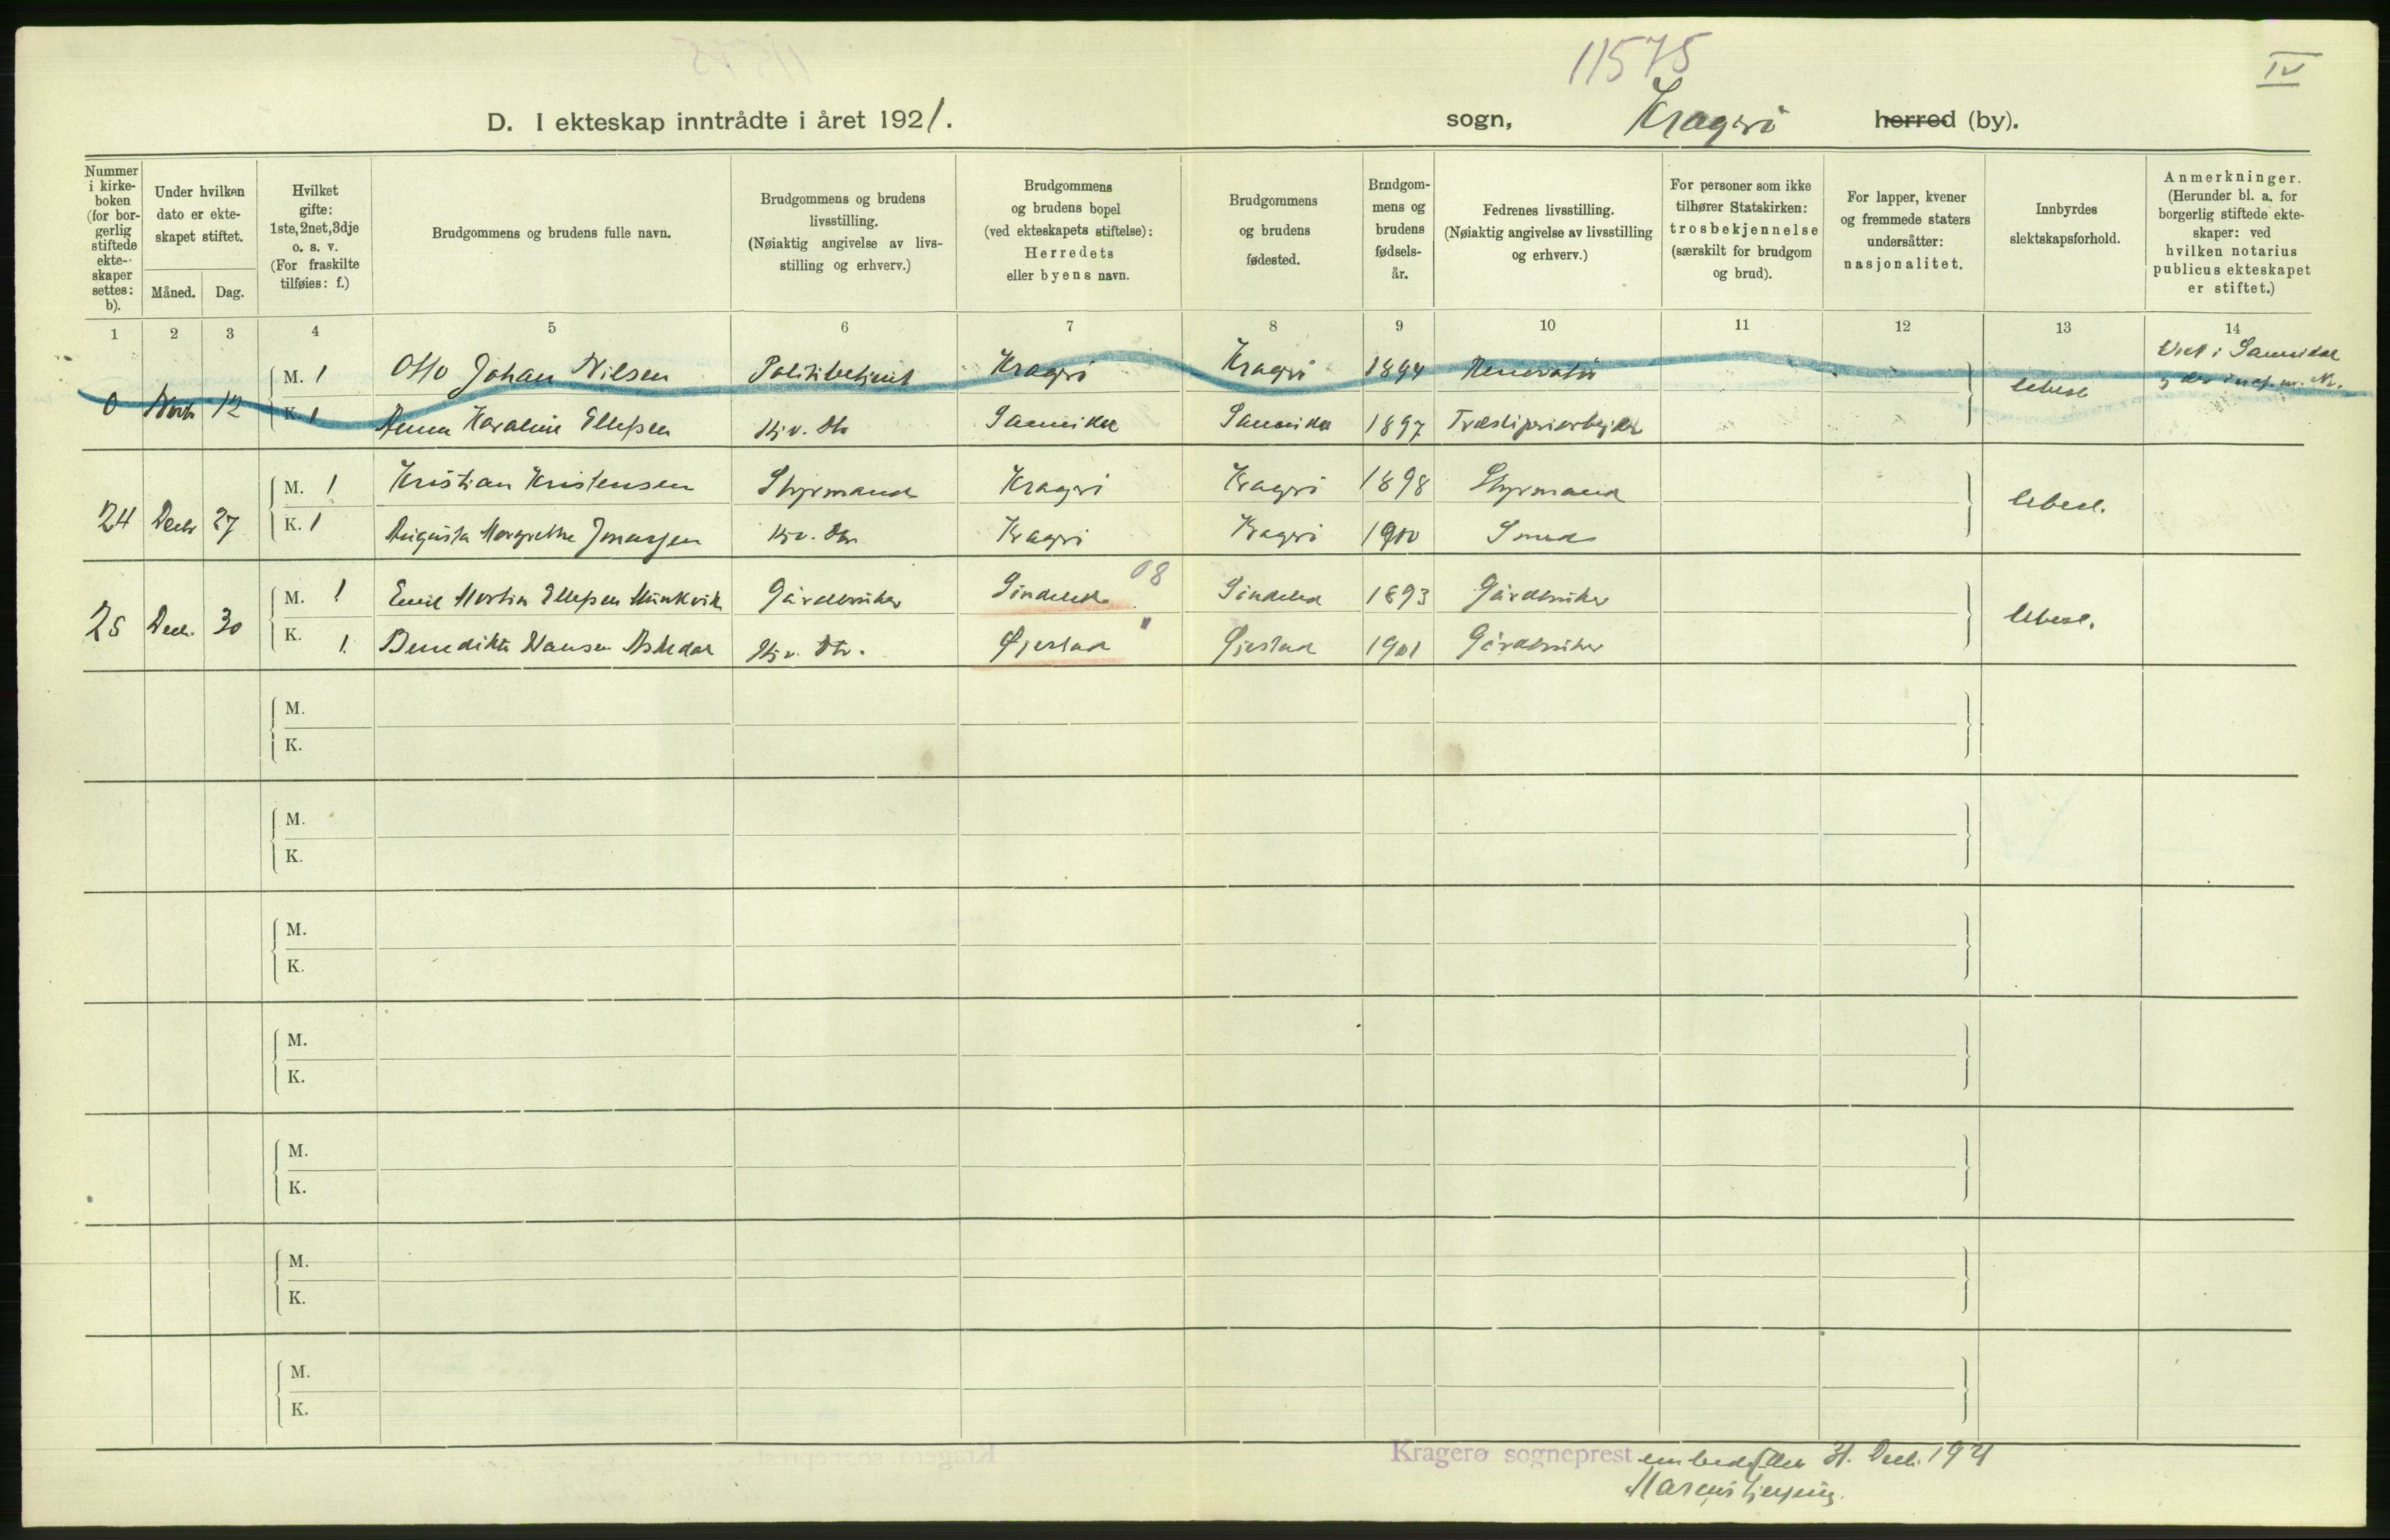 11575
IV
D. I ekteskap inntrådte i året 1921. sogn, Kragerö herred (by).
Nummer i kirke-boken (for bor-gerlig stiftede ekte-skaper settes: b).
Under hvilken dato er ekte-skapet stiftet.
Måned. Dag.
Hvilket gifte: 1ste, 2net, 3dje o. s. v. (For fraskilte tilføies: f.)
Brudgommens og brudens fulle navn.
Brudgommens og brudens livsstilling. (Nøiaktig angivelse av livs-stilling og erhverv.)
Brudgommens og brudens bopel (ved ekteskapets stiftelse): Herredets eller byens navn.
Brudgommens og brudens fødested.
Brudgom-mens og brudens fødsels-år.
Fedrenes livsstilling. (Nøiaktig angivelse av livsstilling og erhverv.)
For personer som ikke tilhører Statskirken: trosbekjennelse (særskilt for brudgom og brud).
For lapper, kvener og fremmede staters undersåtter: nasjonalitet.
Innbyrdes slektskapsforhold.
Anmerkninger. (Herunder bl. a. for borgerlig stiftede ekte-skaper: ved hvilken notarius publicus ekteskapet er stiftet.)
1 2 3 4 5 6 7 8 9 10 11 12 13 14
M. 1 Otto Johan Nilsen Politibetjent Kragerö Kragerö 1894 i Sannidal
0 12 ubesl.
K. 1 Anna Karoline Ellefsen Sannidal Sannidal 1897 Træsliperiarbejder
M. 1 Kristian Kristensen Styrmand Kragerö Kragerö 1898 Styrmand
24 Decbr 27 ubesl.
K. 1 Augusta Margrethe Jonassen Kragerö Kragerö 1900 Smed
08
M. 1 Emil Martin Ellefsen Gårdbruker Söndeled Söndeled 1893 Gårdbruker
25 Dec. 30 ubesl.
K. 1 Benedikte Hansen Askedal Øjestad Øjestad 1901 Gårdbruker
M.
K.
M.
K.
M.
K.
M.
K.
M.
K.
M.
K.
M.
K.
Kragerø sogneprestembede, den 31. Dec. 1921